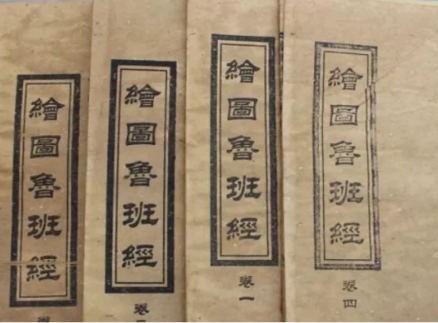 繪圖魯班經
卷
繪圖魯班經
卷
繪圖魯班經
卷一
繪圖魯班經
卷四